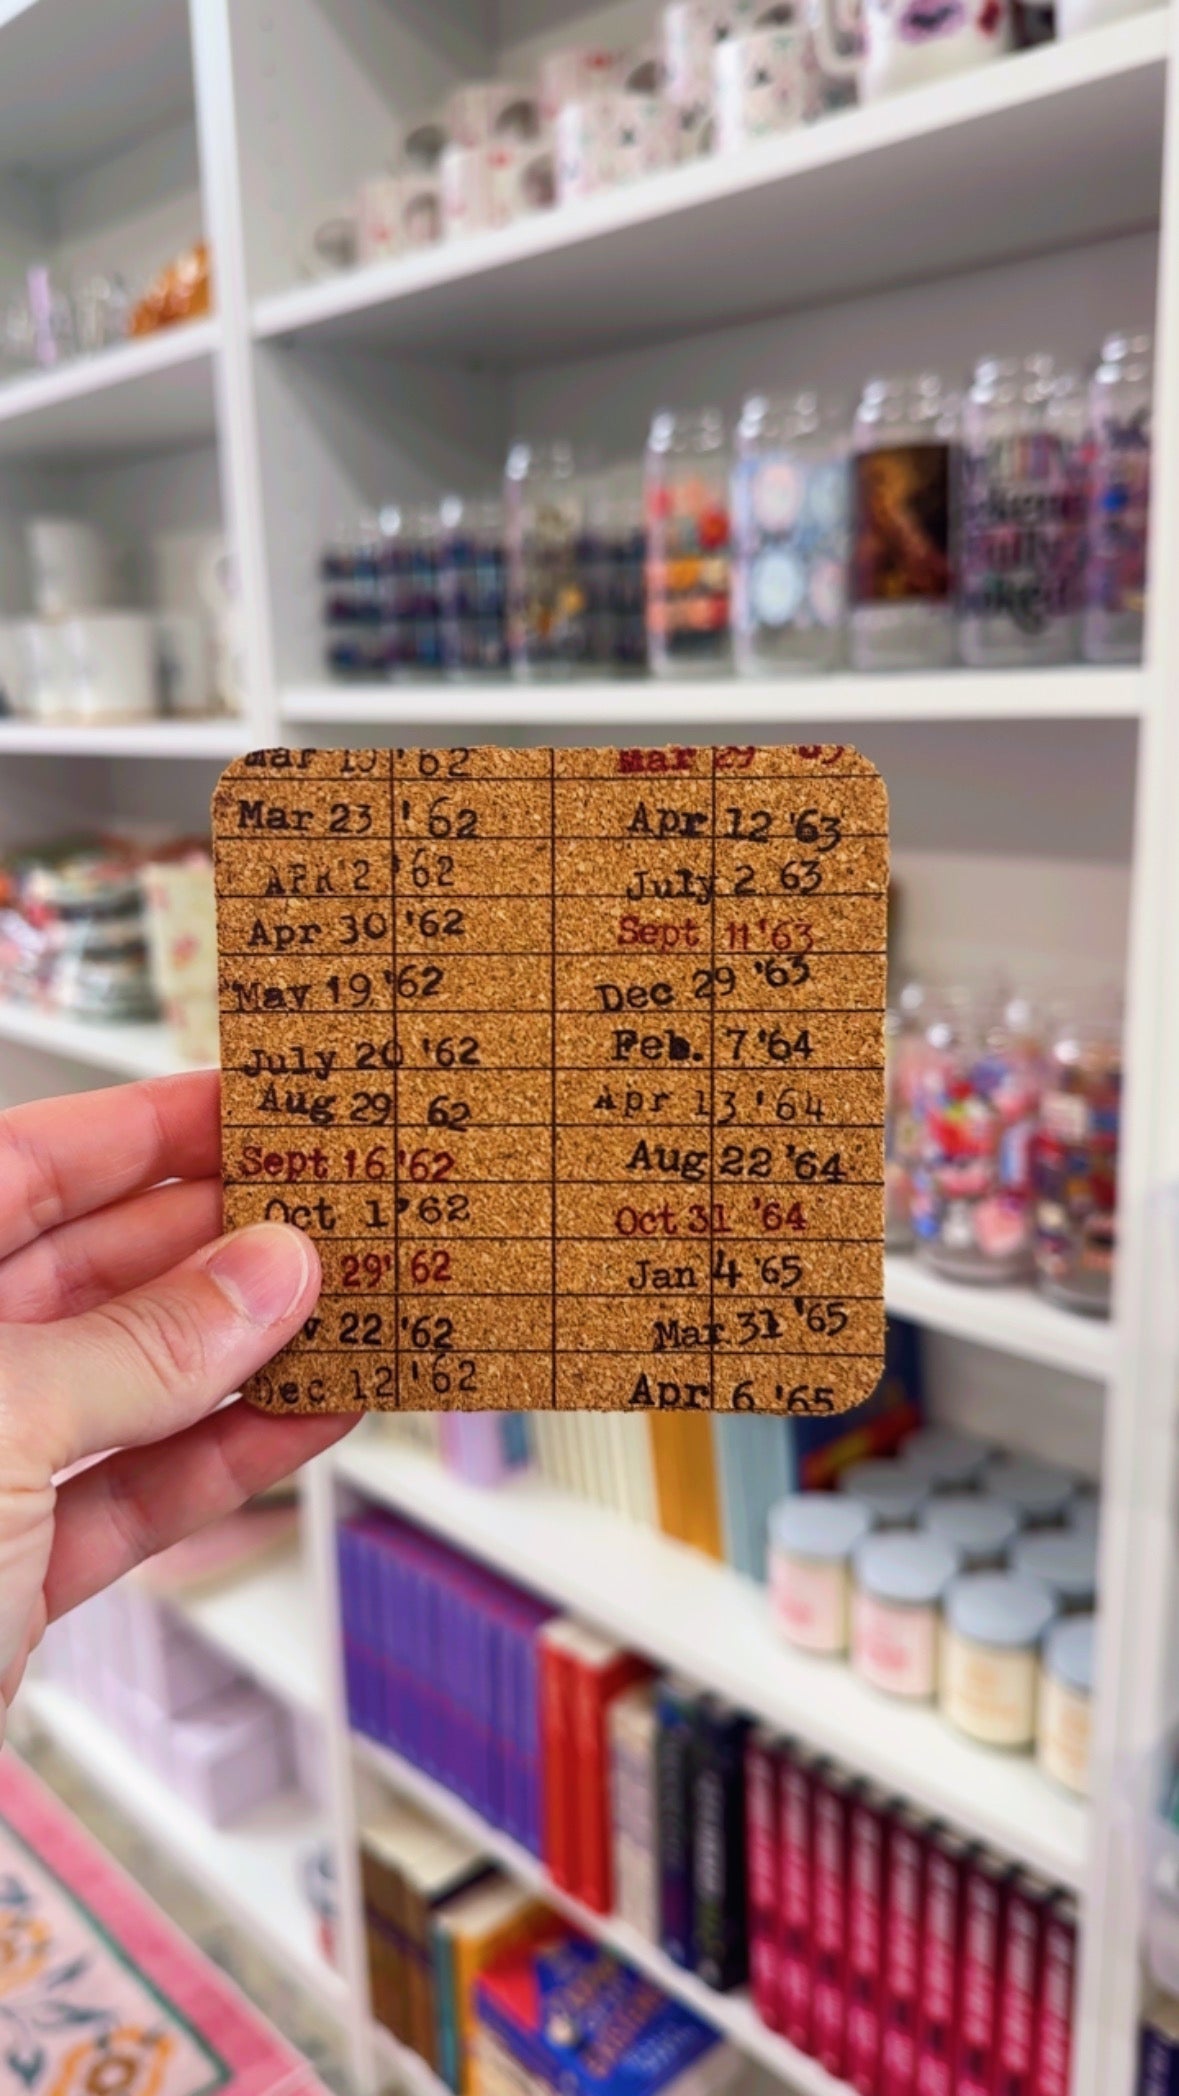 Mar 15 '62
Mar 23 '62
APR 2 '62
Apr 30 '62
May 19 '62
July 20 '62
Aug 29 62
Sept 16 '62
Oct 1 '62
29' 62
v 22 '62
Dec 12 '62
Mar 29 '63
Apr 12 '63
July 2 63
Sept 11 '63
Dec 29 '63
Feb. 7 '64
Apr 13 '64
Aug 22 '64
Oct 31 '64
Jan 4 '65
Mar 31 '65
Apr 6 '65